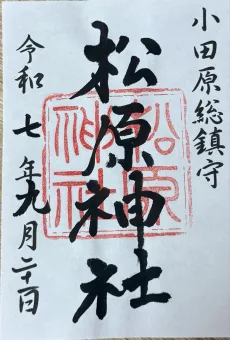 小田原総鎮守
松原神社
令和七年九月二十一日